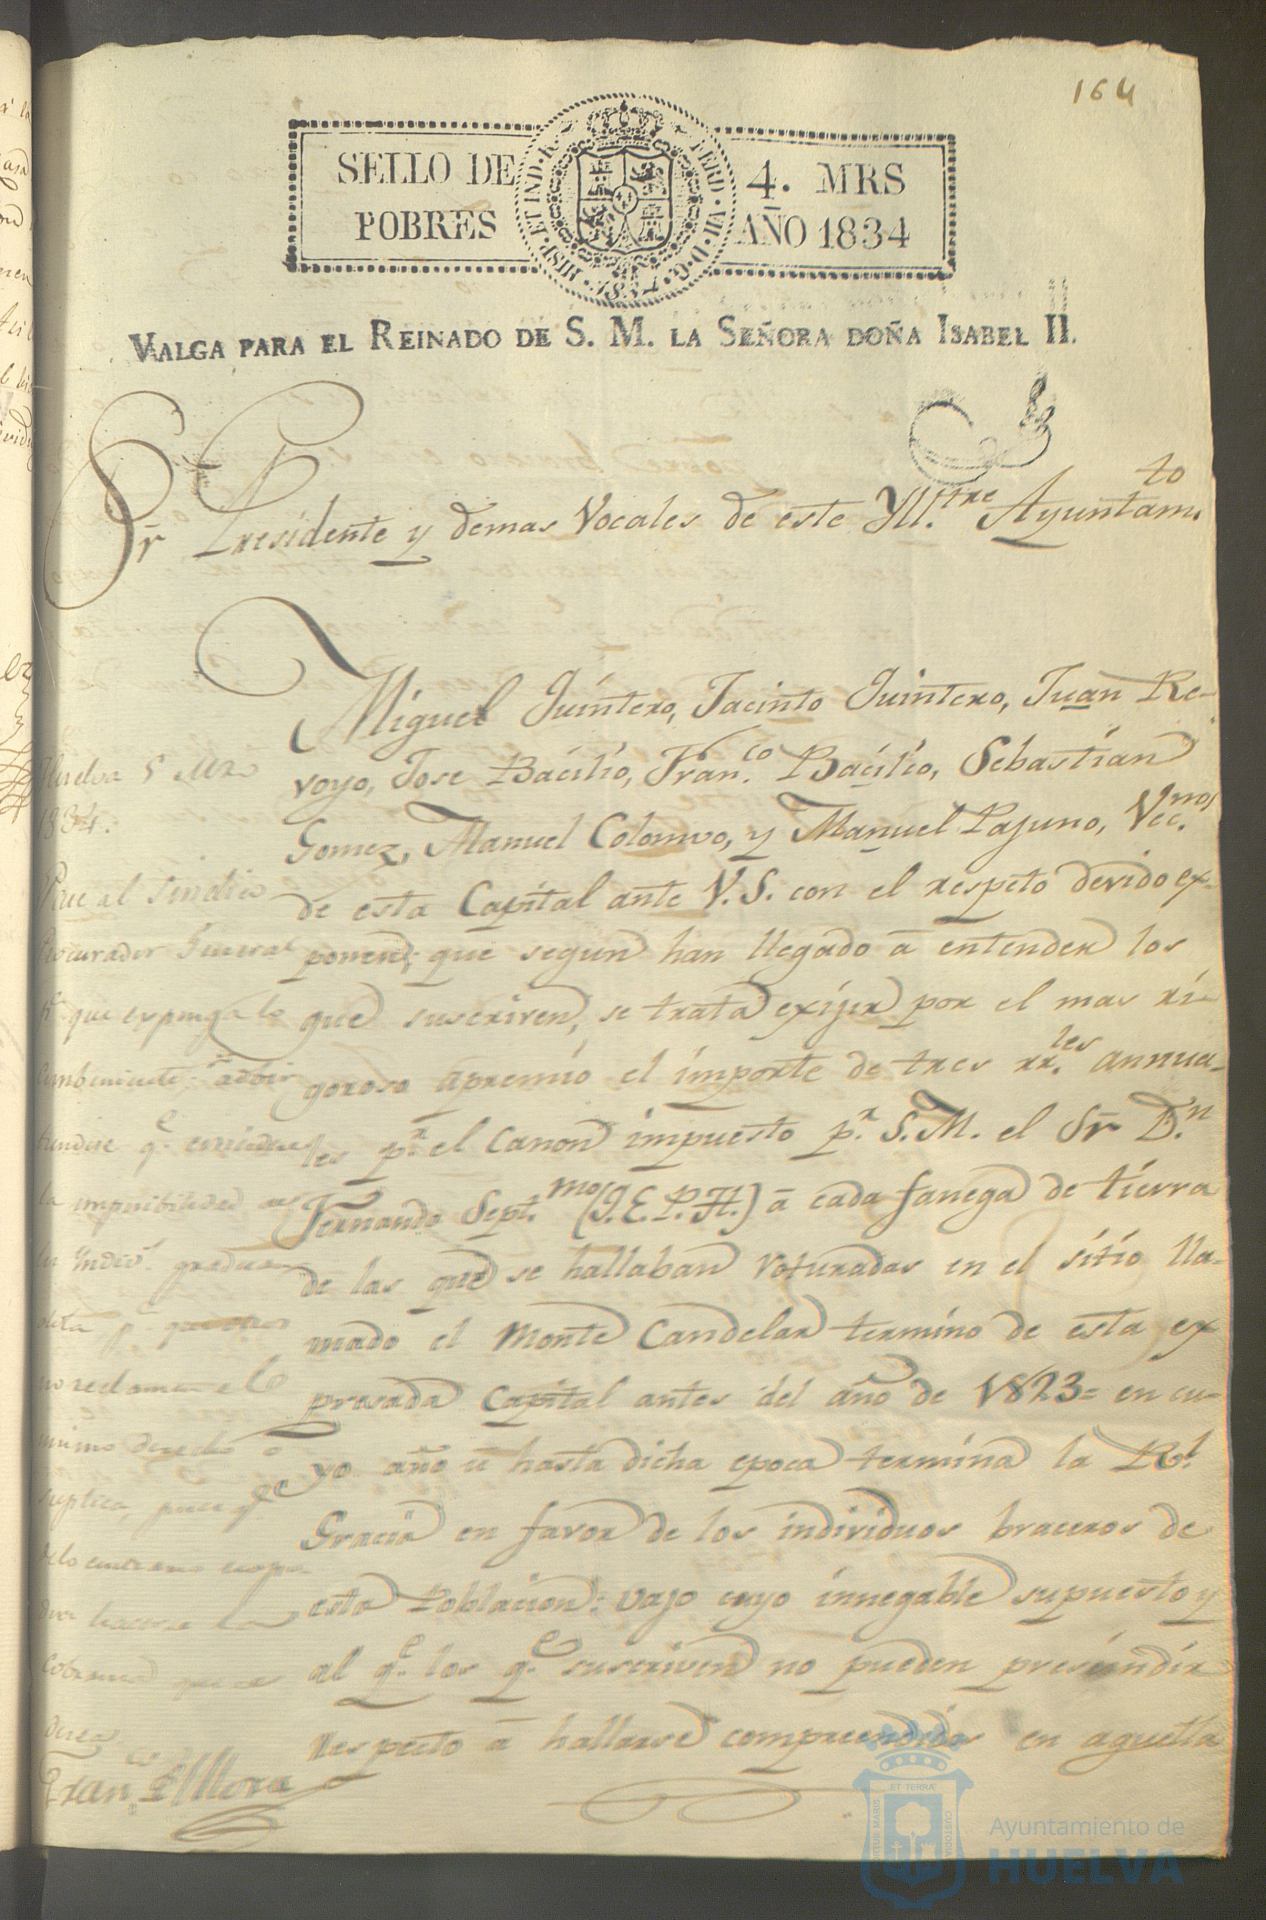 164
SELLO DE 4. MRS
POBRES AÑO 1834
HISP. ET IND. R. FERD. VII. D. G. 1834
VALGA PARA EL REINADO DE S. M. LA SEÑORA DOÑA ISABEL II.
Sr Presidente y demas Vocales de este Yll.tre Ayuntam.to
Miguel Quintero, Jacinto Quintero, Juan Re-
voyo, Jose Bacilio, Fran.co Bacilio, Sebastian
Gomez, Manuel Colomvo, y Manuel Pajuno, Vec.nos
de esta Capital ante V.S. con el respeto devido ex-
ponen; que segun han llegado á entender los
que suscriven, se trata exijir por el mas ri-
goroso apremio el importe de tres rr.les annua-
les p.r el canon impuesto p.r S.M. el Sr D.n
Fernando Sept.mo (Q.E.P.H.) á cada fanega de tierra
de las que se hallaban roturadas en el sitio lla-
mado el Monte Candelar termino de esta ex
presada Capital antes del año de 1823= en cu-
yo año ú hasta dicha epoca termina la R.l
Gracia en favor de los individuos braceros de
esta Poblacion: vajo cuyo innegable supuesto y
al q.e los q.e suscriven no pueden prescindir
respecto á hallarse comprendidos en aquella
Huelva 5 Mzo
1834.
Pase al Sindico
Procurador General
que esponga lo
combeniente,
q.e
la imposibilidad
no reclaman el
Fran.co de Mora
ET TERRA
PORTUS MARIS
CUSTODIA
Ayuntamiento de
HUELVA